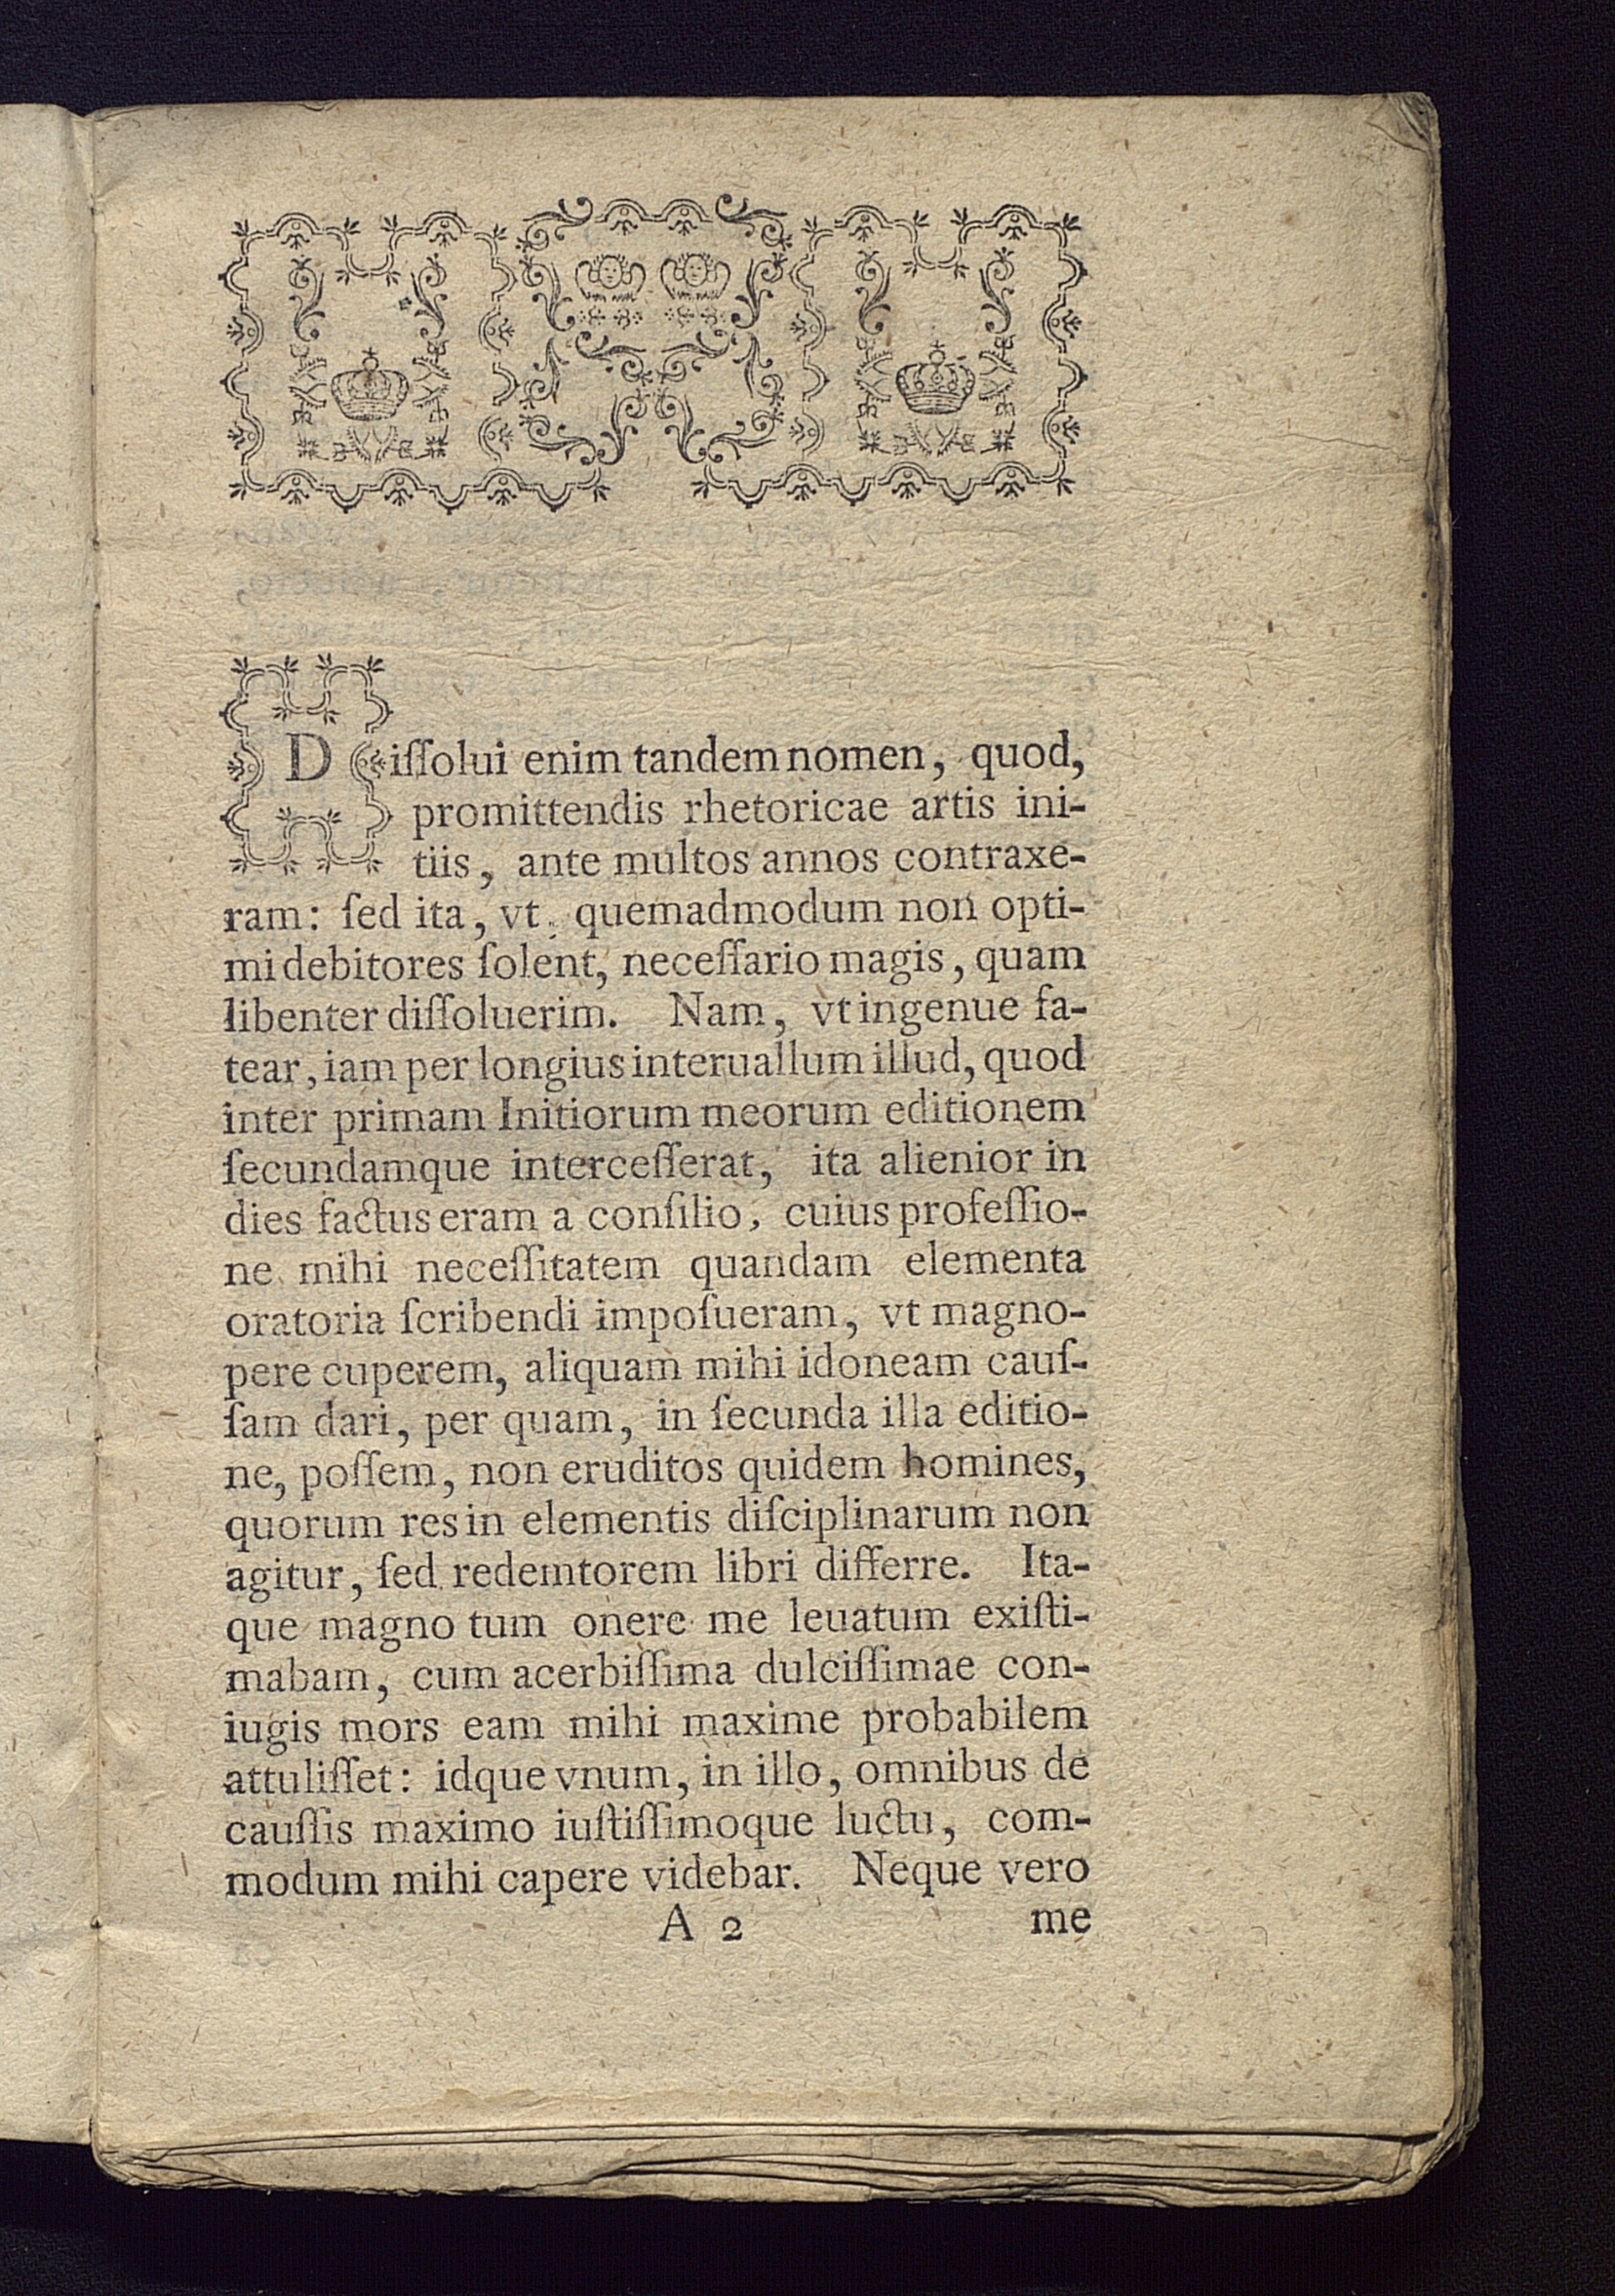 Diſſolui enim tandem nomen, quod,
promittendis rhetoricae artis ini-
tiis, ante multos annos contraxe-
ram: ſed ita, vt, quemadmodum non opti-
mi debitores ſolent, neceſſario magis, quam
libenter diſſoluerim. Nam, vt ingenue fa-
tear, iam per longius interuallum illud, quod
inter primam Initiorum meorum editionem
ſecundamque interceſſerat, ita alienior in
dies factus eram a conſilio, cuius profeſſio-
ne mihi neceſſitatem quandam elementa
oratoria ſcribendi impoſueram, vt magno-
pere cuperem, aliquam mihi idoneam cauſ-
ſam dari, per quam, in ſecunda illa editio-
ne, poſſem, non eruditos quidem homines,
quorum res in elementis diſciplinarum non
agitur, ſed redemtorem libri differre. Ita-
que magno tum onere me leuatum exiſti-
mabam, cum acerbiſſima dulciſſimae con-
iugis mors eam mihi maxime probabilem
attuliſſet: idque vnum, in illo, omnibus de
cauſſis maximo iuſtiſſimoque luctu, com-
modum mihi capere videbar. Neque vero
A 2 me